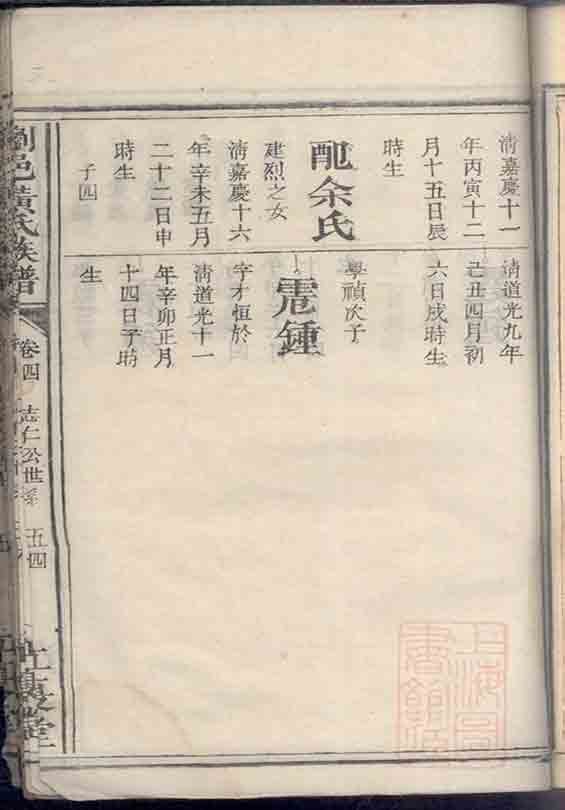 清嘉慶十一
年丙寅十二
月十五日辰
時生
配余氏
建烈之女
清嘉慶十六
年辛未五月
二十二日申
時生
子四
清道光九年
己丑四月初
六日戌時生
學禎次子
鍾
字才恒於
清道光十一
年辛卯正月
十四日子時
生
瀏邑黃氏族譜
卷四
志仁公世系
五四
上海圖書館藏